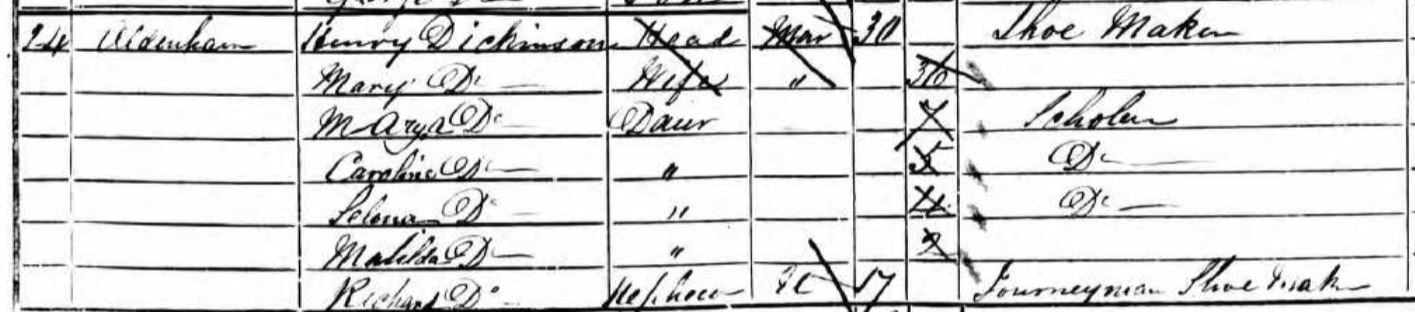 24 Aldenham Henry Dickinson Head Mar 30 Shoe Maker
Mary Do Wife " 36
Mary A Do Daur 7 Scholar
Caroline Do " 5 Do
Selena Do " 4 Do
Matilda Do " 2
Richard Do Nephew 17 Journeyman Shoe Mak